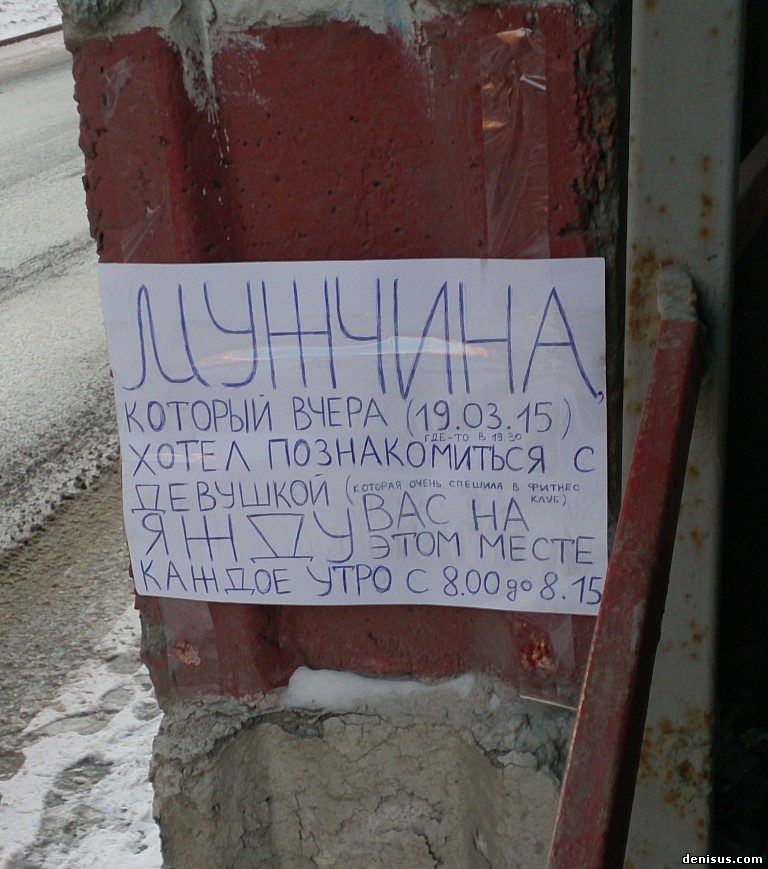 МУЖЧИНА,
КОТОРЫЙ ВЧЕРА (19.03.15)
ГДЕ-ТО В 19.30
ХОТЕЛ ПОЗНАКОМИТЬСЯ С
ДЕВУШКОЙ (КОТОРАЯ ОЧЕНЬ СПЕШИЛА В ФИТНЕС
КЛУБ)
Я ЖДУ ВАС НА
ЭТОМ МЕСТЕ
КАЖДОЕ УТРО С 8.00 до 8.15
denisus.com